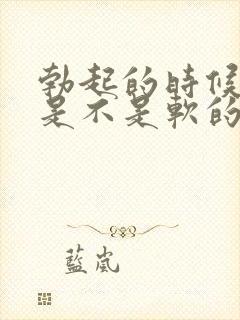 勃起的時候
是不是軟的
藍嵐